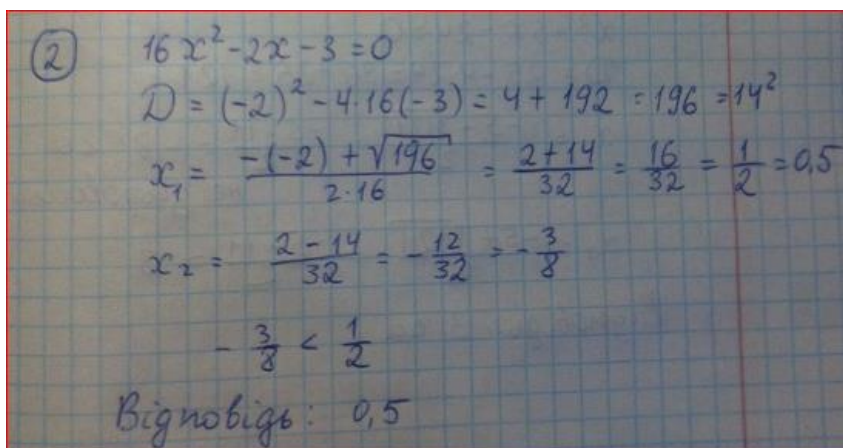 2 16x² - 2x - 3 = 0
D = (-2)² - 4·16(-3) = 4 + 192 = 196 = 14²
x₁ = (-(-2) + √196)/(2·16) = (2+14)/32 = 16/32 = 1/2 = 0,5
x₂ = (2 - 14)/32 = -12/32 = -3/8
-3/8 < 1/2
Відповідь: 0,5